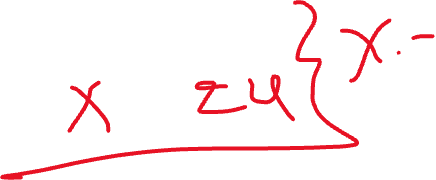 x zu { x.-